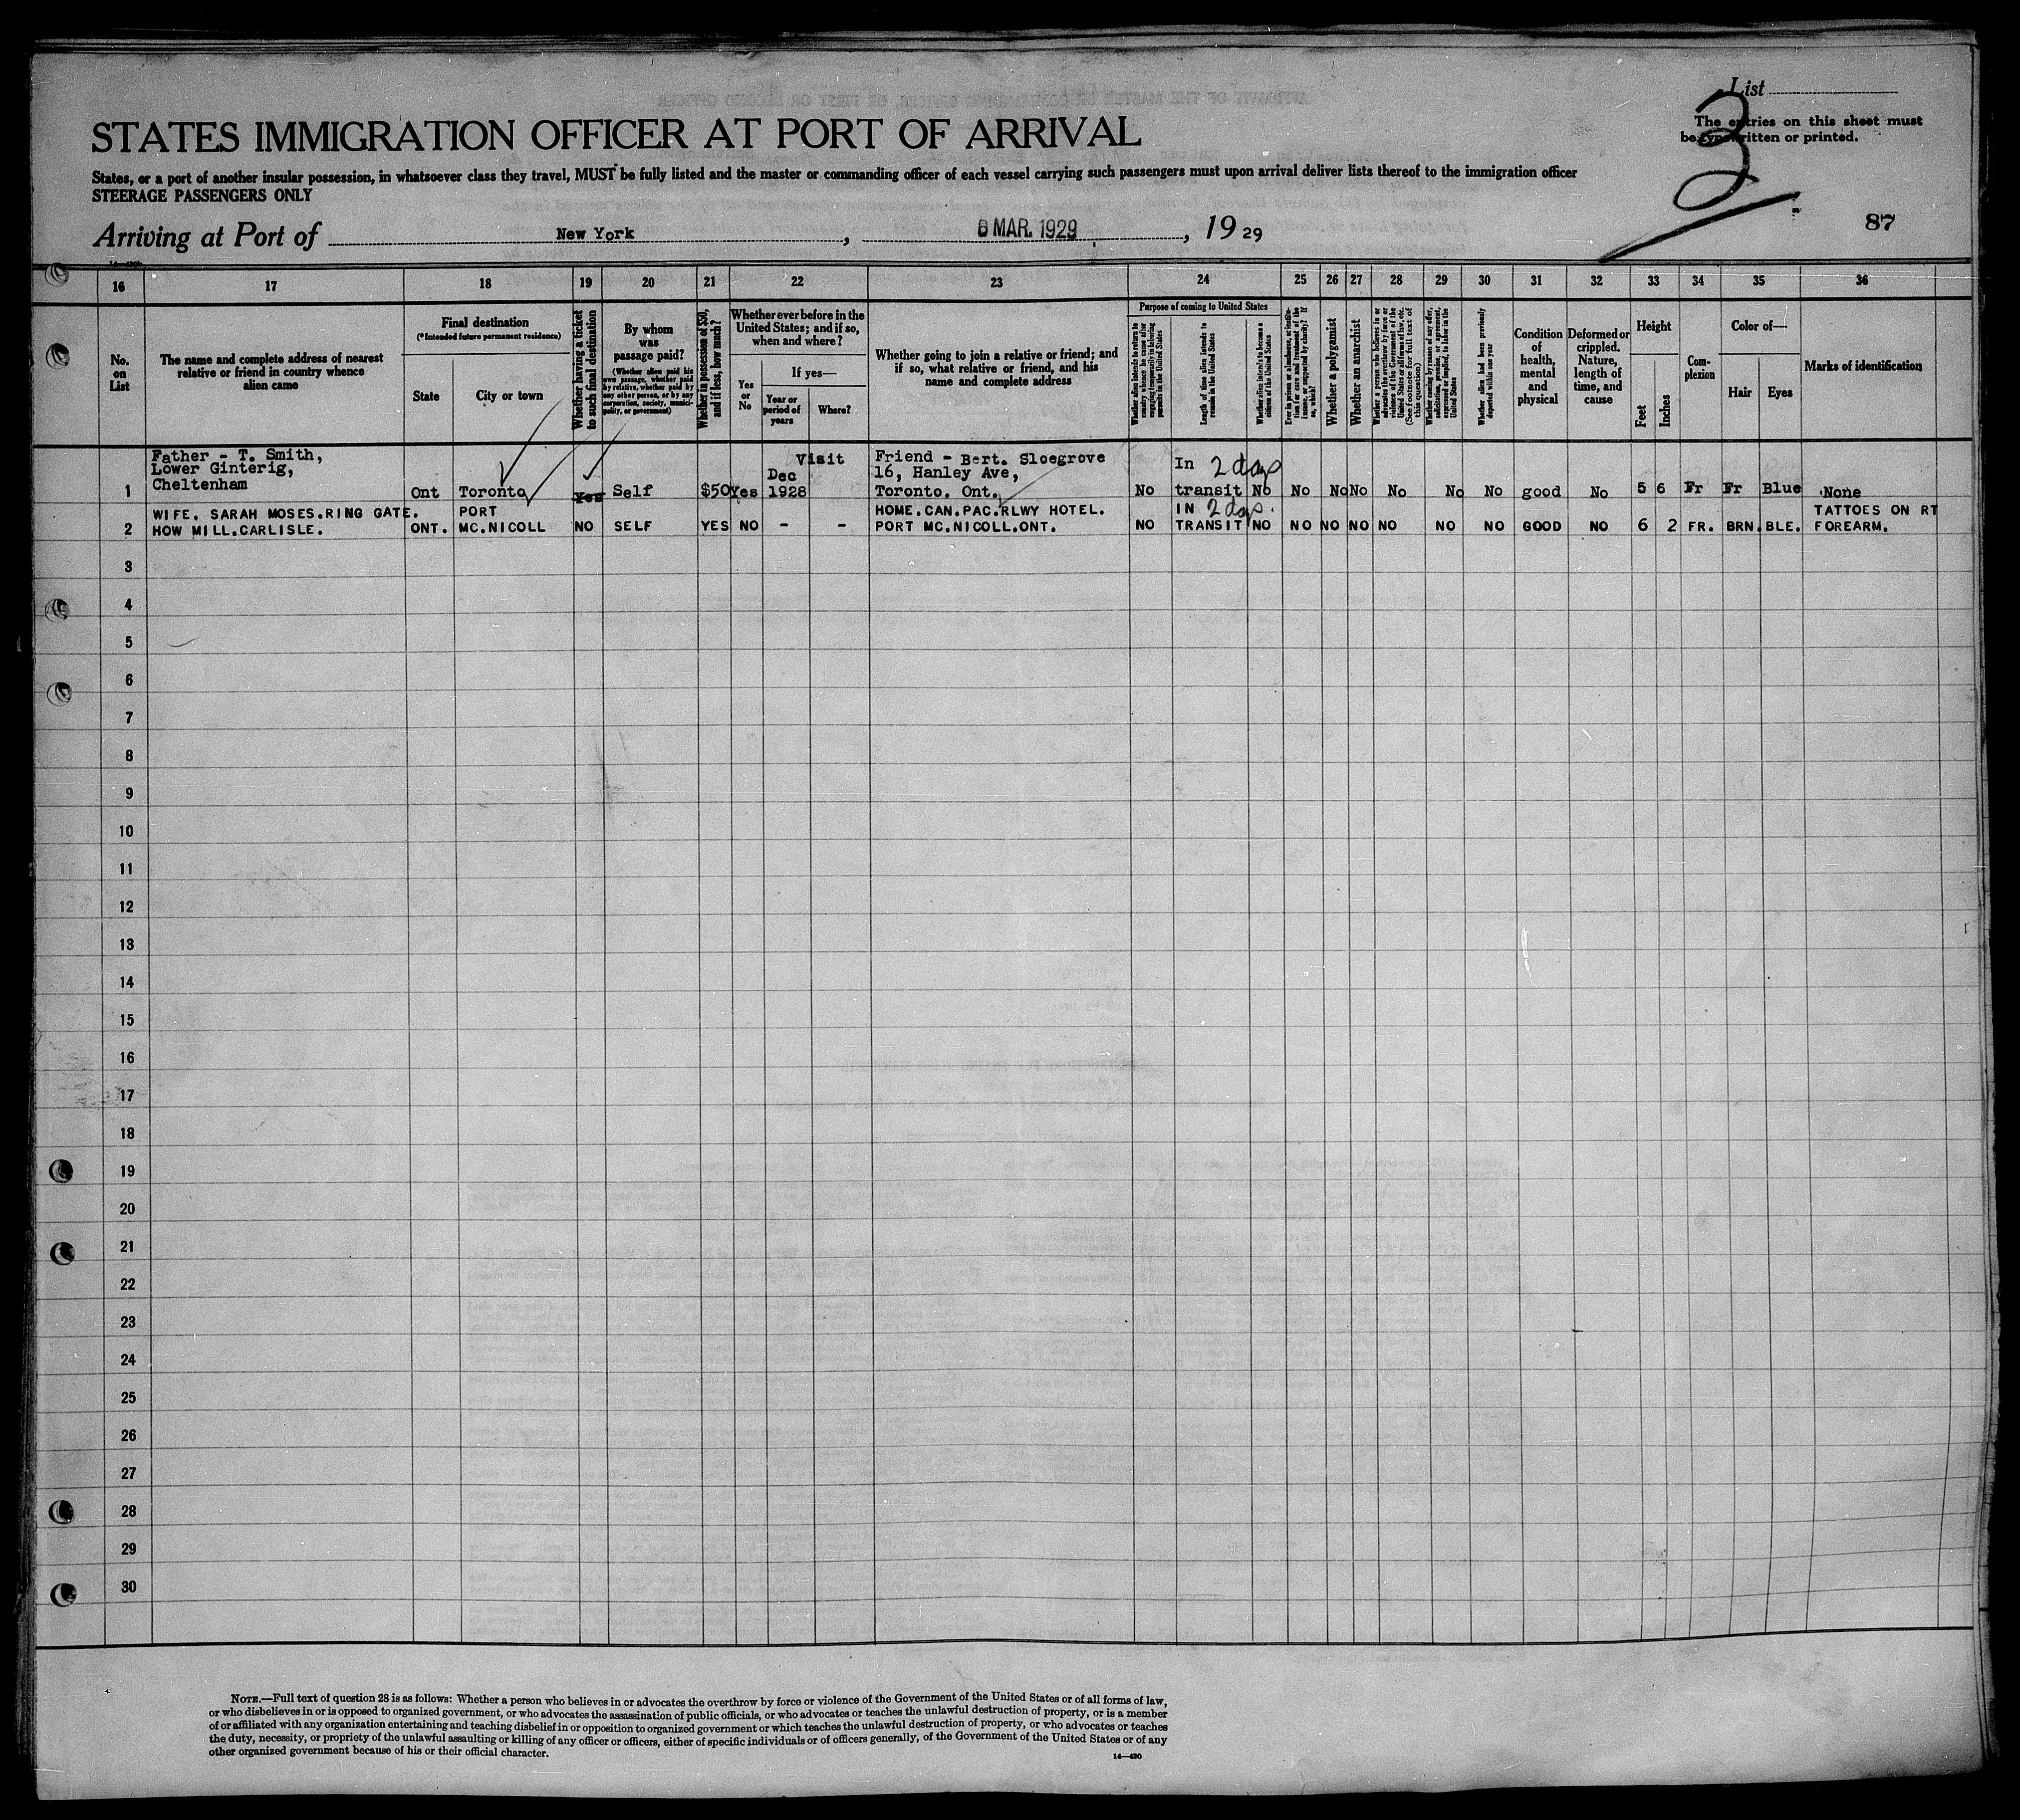 List
The entries on this sheet must
be typewritten or printed.
3
STATES IMMIGRATION OFFICER AT PORT OF ARRIVAL
States, or a port of another insular possession, in whatsoever class they travel, MUST be fully listed and the master or commanding officer of each vessel carrying such passengers must upon arrival deliver lists thereof to the immigration officer
STEERAGE PASSENGERS ONLY
Arriving at Port of New York, 6 MAR. 1929, 19 29
87
16 17 18 19 20 21 22 23 24 25 26 27 28 29 30 31 32 33 34 35 36
No. on List
The name and complete address of nearest relative or friend in country whence alien came
Final destination
(*Intended future permanent residence)
State
City or town
Whether having a ticket to such final destination
By whom was passage paid?
(Whether alien paid his own passage, whether paid by relative, whether paid by any other person, or by any corporation, society, municipality, or government)
Whether in possession of $50, and if less, how much?
Whether ever before in the United States; and if so, when and where?
Yes or No
If yes—
Year or period of years
Where?
Whether going to join a relative or friend; and if so, what relative or friend, and his name and complete address
Purpose of coming to United States
Whether alien intends to return to country whence he came after engaging temporarily in laboring pursuits in the United States
Length of time alien intends to remain in the United States
Whether alien intends to become a citizen of the United States
Ever in prison or almshouse, or institution for care and treatment of the insane, or supported by charity? If so, which?
Whether a polygamist
Whether an anarchist
Whether a person who believes in or advocates the overthrow by force or violence of the Government of the United States or all forms of law, etc. (See footnote for full text of this question)
Whether coming by reason of any offer, solicitation, promise, or agreement, expressed or implied, to labor in the United States
Whether alien had been previously deported within one year
Condition of health, mental and physical
Deformed or crippled. Nature, length of time, and cause
Height
Feet
Inches
Complexion
Color of—
Hair
Eyes
Marks of identification
Father - T. Smith,
Lower Ginterig,
Cheltenham
1 Ont Toronto Yes Self $50 Yes Dec 1928 Visit
Friend - Bert. Sloegrove
16, Hanley Ave,
Toronto. Ont.
No In transit 2 days No No No No No No No good No 5 6 Fr Fr Blue None
WIFE. SARAH MOSES.RING GATE.
2 HOW MILL.CARLISLE. ONT. PORT MC.NICOLL NO SELF YES NO - -
HOME.CAN.PAC.RLWY HOTEL.
PORT MC.NICOLL.ONT.
NO IN TRANSIT 2 days. NO NO NO NO NO NO NO GOOD NO 6 2 FR. BRN. BLE. TATTOES ON RT FOREARM.
3
4
5
6
7
8
9
10
11
12
13
14
15
16
17
18
19
20
21
22
23
24
25
26
27
28
29
30
NOTE.—Full text of question 28 is as follows: Whether a person who believes in or advocates the overthrow by force or violence of the Government of the United States or of all forms of law,
or who disbelieves in or is opposed to organized government, or who advocates the assassination of public officials, or who advocates or teaches the unlawful destruction of property, or is a member
of or affiliated with any organization entertaining and teaching disbelief in or opposition to organized government or which teaches the unlawful destruction of property, or who advocates or teaches
the duty, necessity, or propriety of the unlawful assaulting or killing of any officer or officers, either of specific individuals or of officers generally, of the Government of the United States or of any
other organized government because of his or their official character.
14—430